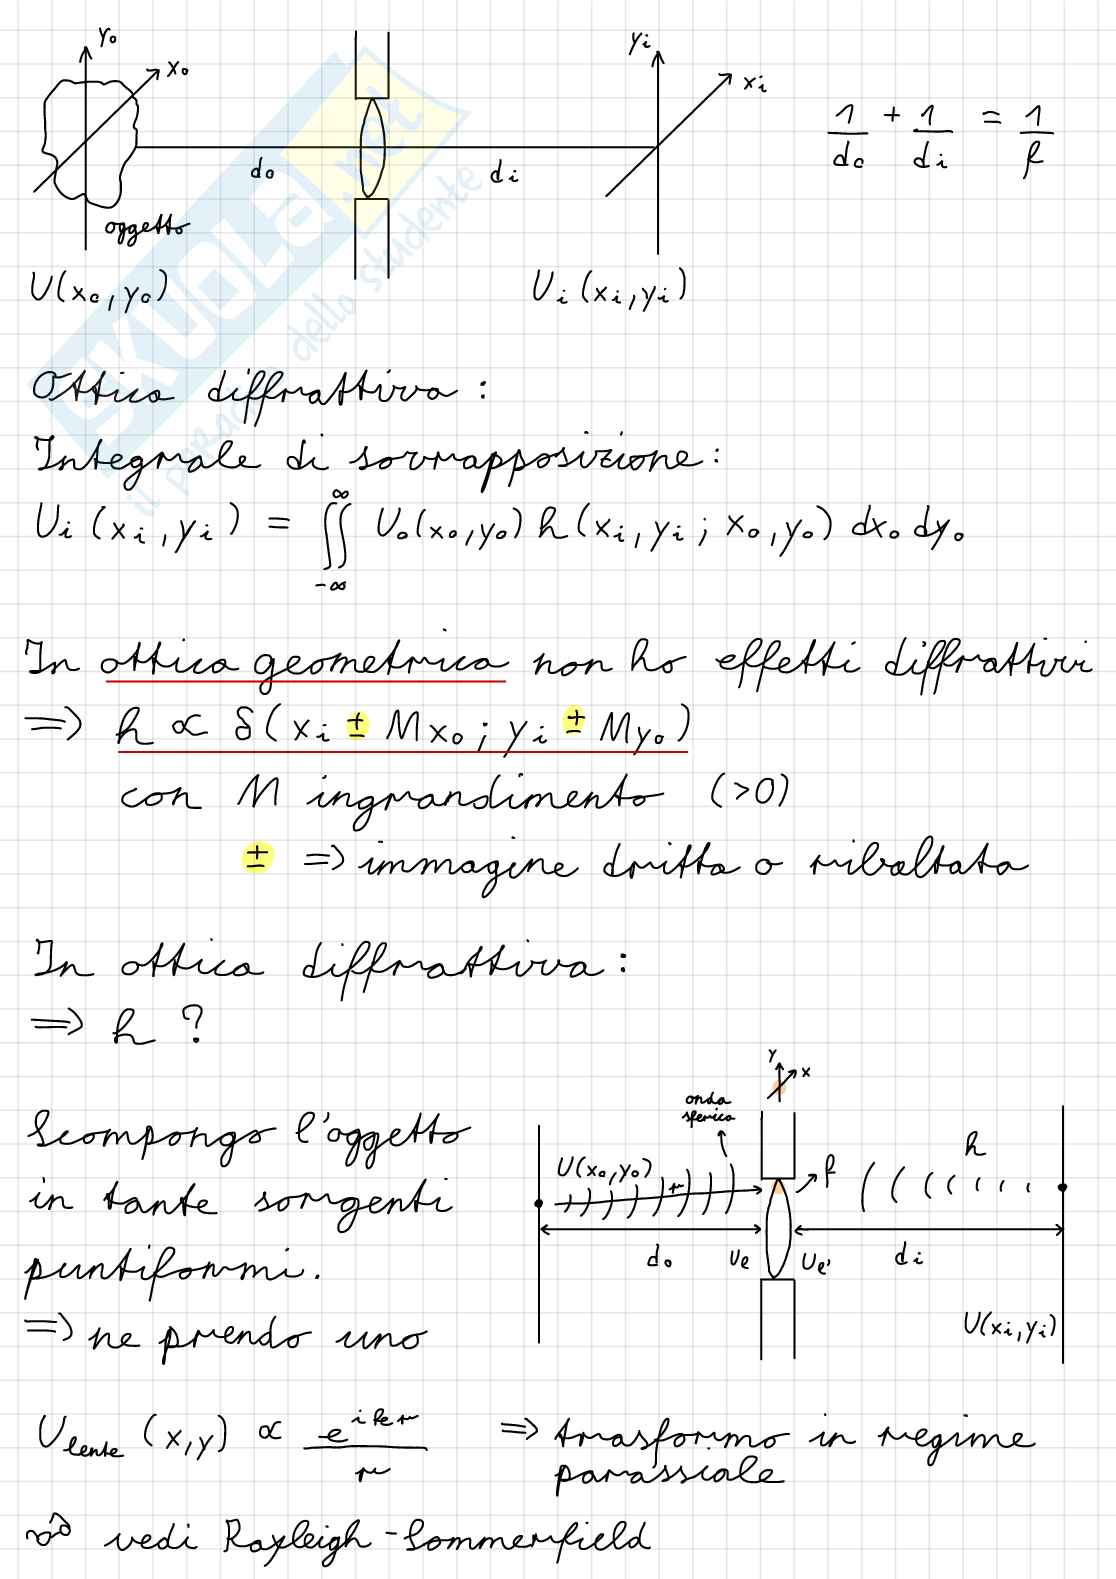 yo
xo
do
di
oggetto
U(xo,yo)
yi
xi
Ui(xi,yi)
1/do + 1/di = 1/f
SKUOLA.net
il paradiso dello studente
Ottica diffrattiva:
Integrale di sovrapposizione:
Ui(xi,yi) = ∬_{-∞}^{∞} Uo(xo,yo) h(xi,yi; xo,yo) dxo dyo
In ottica geometrica non ho effetti diffrattivi
=> h ∝ δ(xi ± Mxo; yi ± Myo)
con M ingrandimento (>0)
± => immagine dritta o ribaltata
In ottica diffrattiva:
=> h ?
Scompongo l'oggetto
in tante sorgenti
puntiformi.
=> ne prendo uno
y
x
onda
sferica
U(xo,yo)
r
f
h
do
Ue
Ue'
di
U(xi,yi)
Ulente (x,y) ∝ e^{ikr}/r => trasformo in regime
parassiale
vedi Rayleigh-Sommerfield